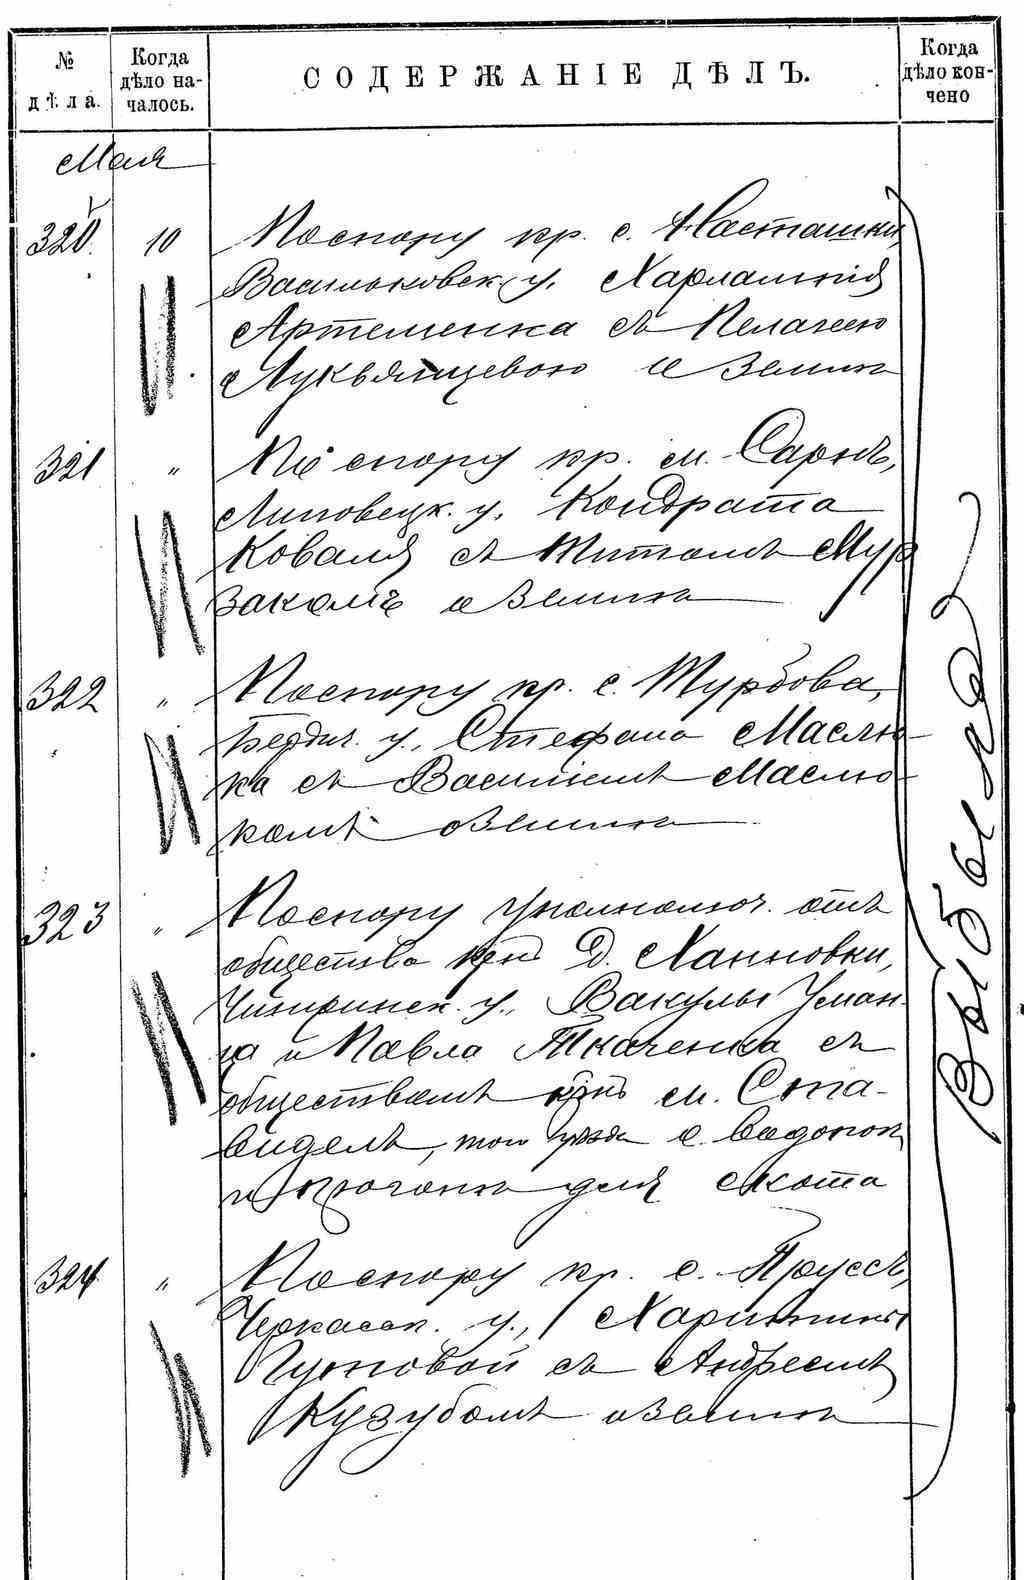 № дѣла.
Когда дѣло на-чалось.
СОДЕРЖАНІЕ ДѢЛЪ.
Когда дѣло кон-чено
Мая
320. 10 По спору кр. с. Насташки,
Васильковск. у. Харлампія
Артеменка съ Пелагеею
Лукьянцевою о землѣ
321 " По спору кр. м. Сарнъ,
Липовецк. у. Кондрата
Коваля съ Титомъ Мур
закомъ о землѣ
322 " По спору кр. с. Турбова,
Бердич. у., Стефана Маслю
ка съ Василіемъ Маслю
комъ о землѣ
323 " По спору уполномоч. отъ
общества крнъ д. Ханновки,
Чигиринск. у., Вакулы Уман
ца и Павла Ткаченка съ
обществомъ крнъ м. Ста-
виделъ, того уѣзда о водопоѣ
и прогонѣ для скота
324 " По спору кр. с. Пруссъ,
Черкасск. у., Харитины
съ Андреемъ
Кузубомъ о землѣ
Выбыла